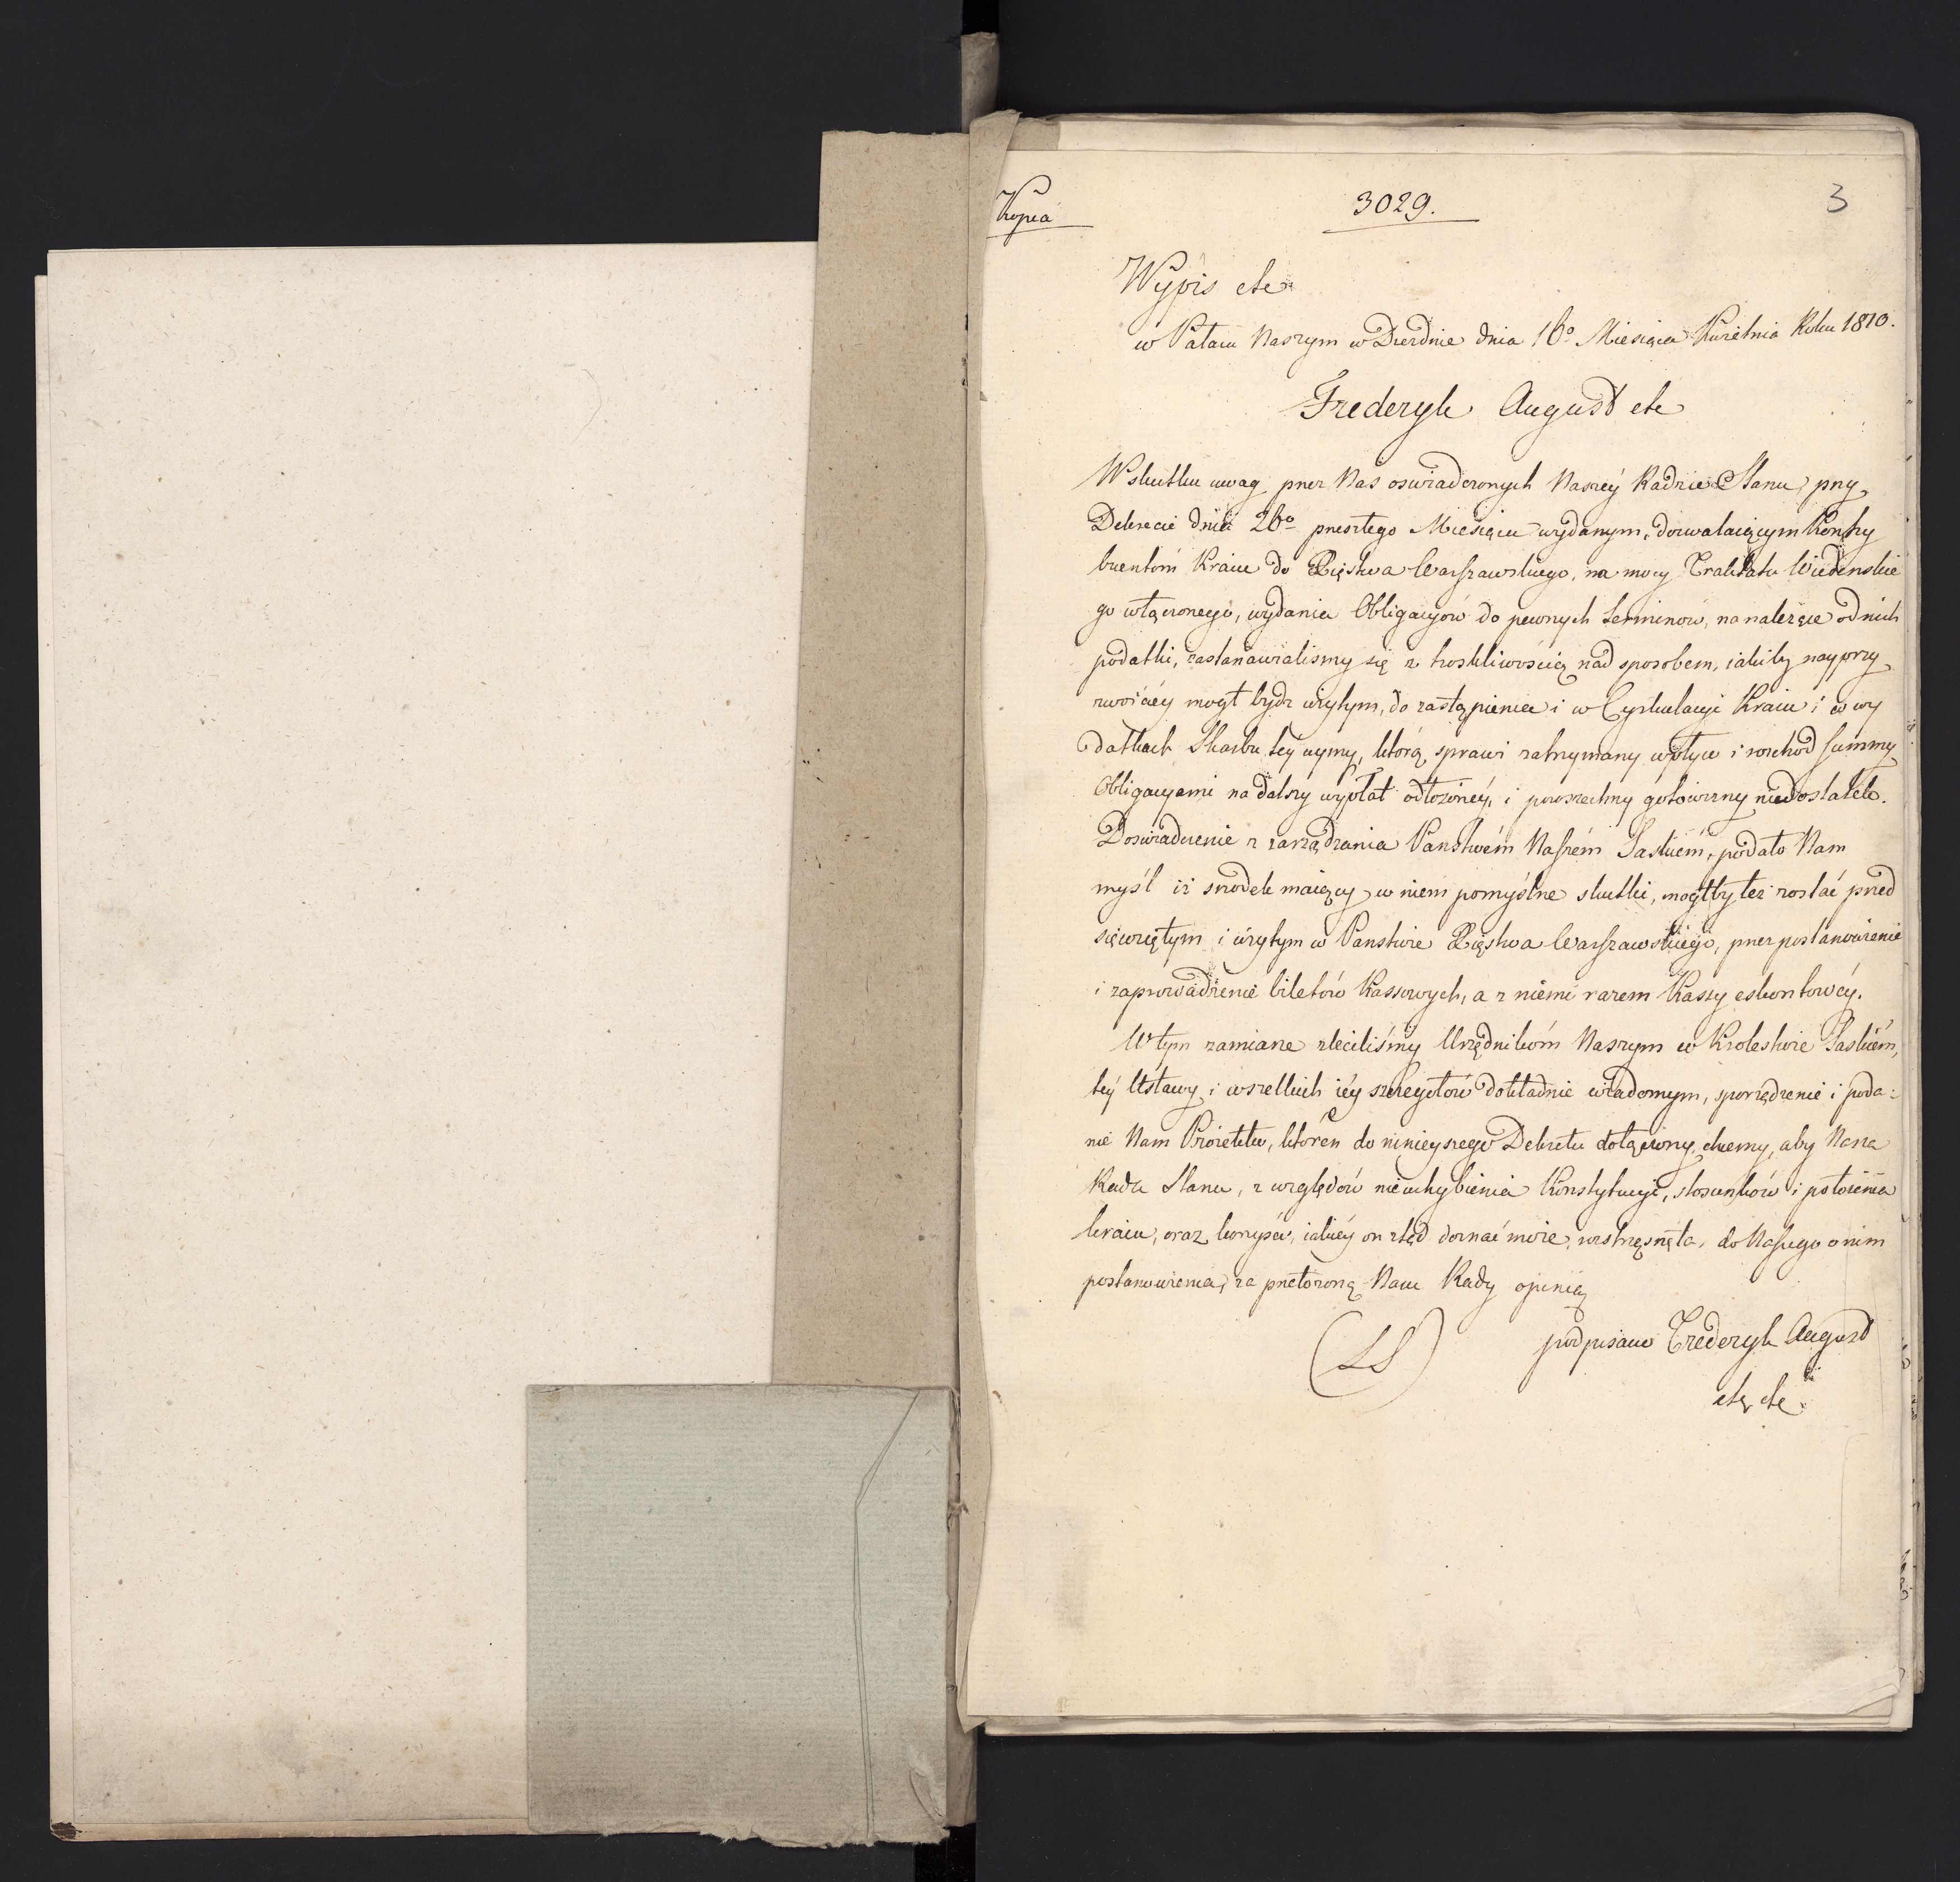 Kopia
3029.
3
Wypis etc
w Pałacu Naszym w Dreźnie dnia 16º Miesiąca Kwietnia Roku 1810.
Frederyk August etc
W skutku uwag przez Nas oswiadczonych Naszéy Radzie Stanu, przy
Dekrecie dnia 26º przeszłego Miesiąca wydanym, dozwalaiącym Kontry
buentóm Kraiu do Xięstwa Warszawskiego, na mocy Traktatu Wiedenskie
go włączonego, wydania Obligacyów do pewnych terminow, na należące od nich
podatki, zastanawialismy się z troskliwością nad sposobem, iakiby nayprzy
zwoiciéy mogł bydz użytym, do zastąpienia i w Cyrkulacyi Kraiu i w wy
datkach Skarbu téy uymy, którą sprawi zatrzymany wpływ i rozchod summy
Obligacyami na dalszy wypłat odłożonéy, i powszechny gotowizny niedostatek.
Doswiadczenie z zarządzania Panstwém Naszém Saskiém, podało Nam
myśl iż srodek maiący w niem pomyślne skutki, mogłby też zostać przed
sięwziętym i użytym w Panstwie Xięstwa Warszawskiego, przez postanowienie
i zaprowadzenie biletów Kassowych, a z niemi razem Kassy eskontowéy.
W tym zamiarze zleciliśmy Urzędnikóm Naszym w Krolestwie Saskiém,
téy Ustawy i wszelkich iéy szczegołów dokładnie wiadomym, sporządzenie i poda-
nie Nam Proiektu, ktoren do ninieyszego Dekretu dołączony, chcemy, aby Nasza
Rada Stanu, z względów nieuchybienia Konstytucyi, stosunków i położenia
kraiu, oraz korzyści, iakiéy on ztąd doznać może, roztrząsnęła, do Naszego o nim
postanowienia, za przełożoną Nam Rady opinią
(LS)
podpisano Frederyk August
etc etc